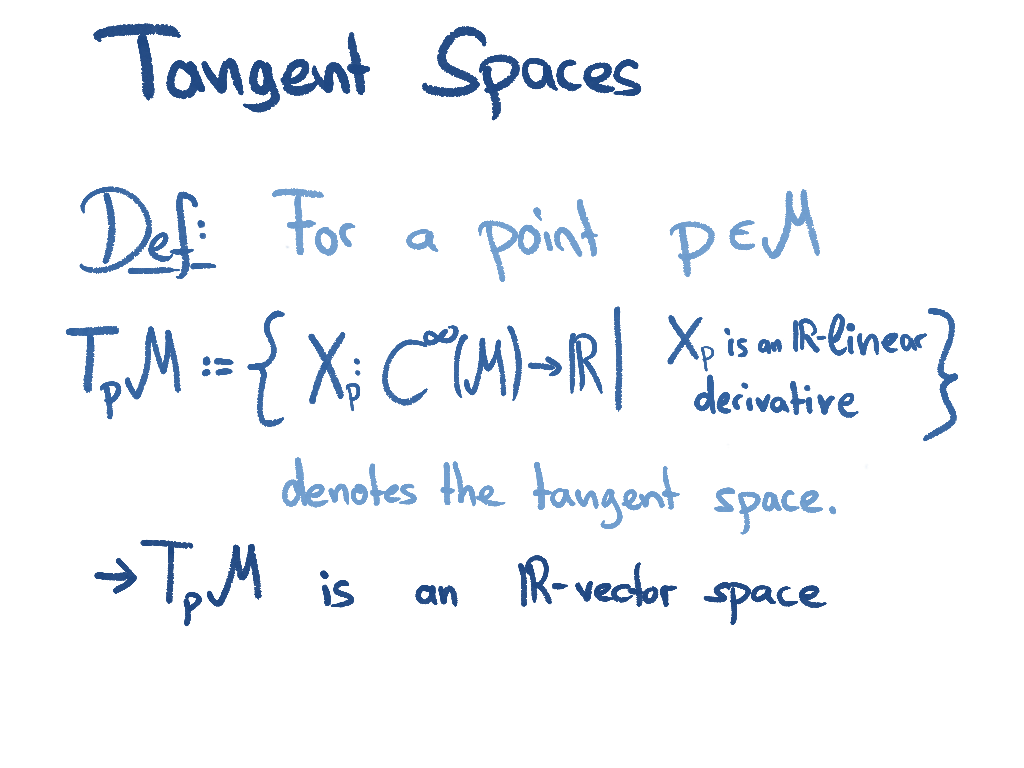 Tangent Spaces
Def: For a point p ∈ M
TₚM := { Xₚ: C^∞(M) → ℝ | Xₚ is an ℝ-linear derivative }
denotes the tangent space.
→ TₚM is an ℝ-vector space